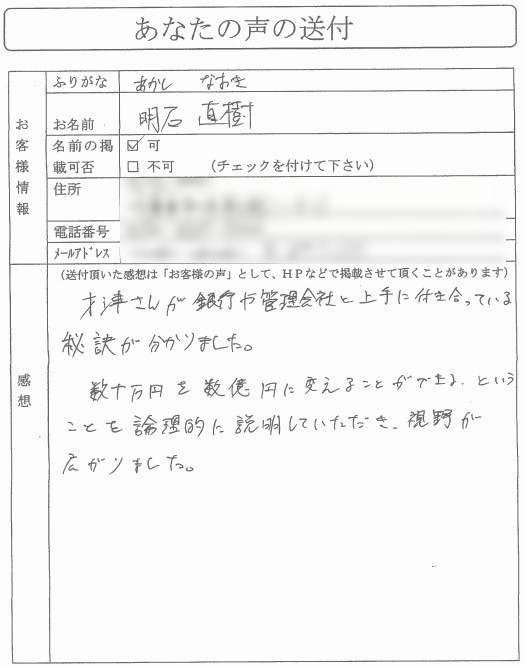 あなたの声の送付
お客様情報
ふりがな あかし なおき
お名前 明石 直樹
名前の掲載可否
☑ 可
☐ 不可 (チェックを付けて下さい)
住所
電話番号
メールアドレス
感想
(送付頂いた感想は「お客様の声」として、HPなどで掲載させて頂くことがあります)
才津さんが銀行や管理会社と上手に付き合っている
秘訣が分かりました。
数十万円を数億円に変えることができる、という
ことを論理的に説明していただき、視野が
広がりました。